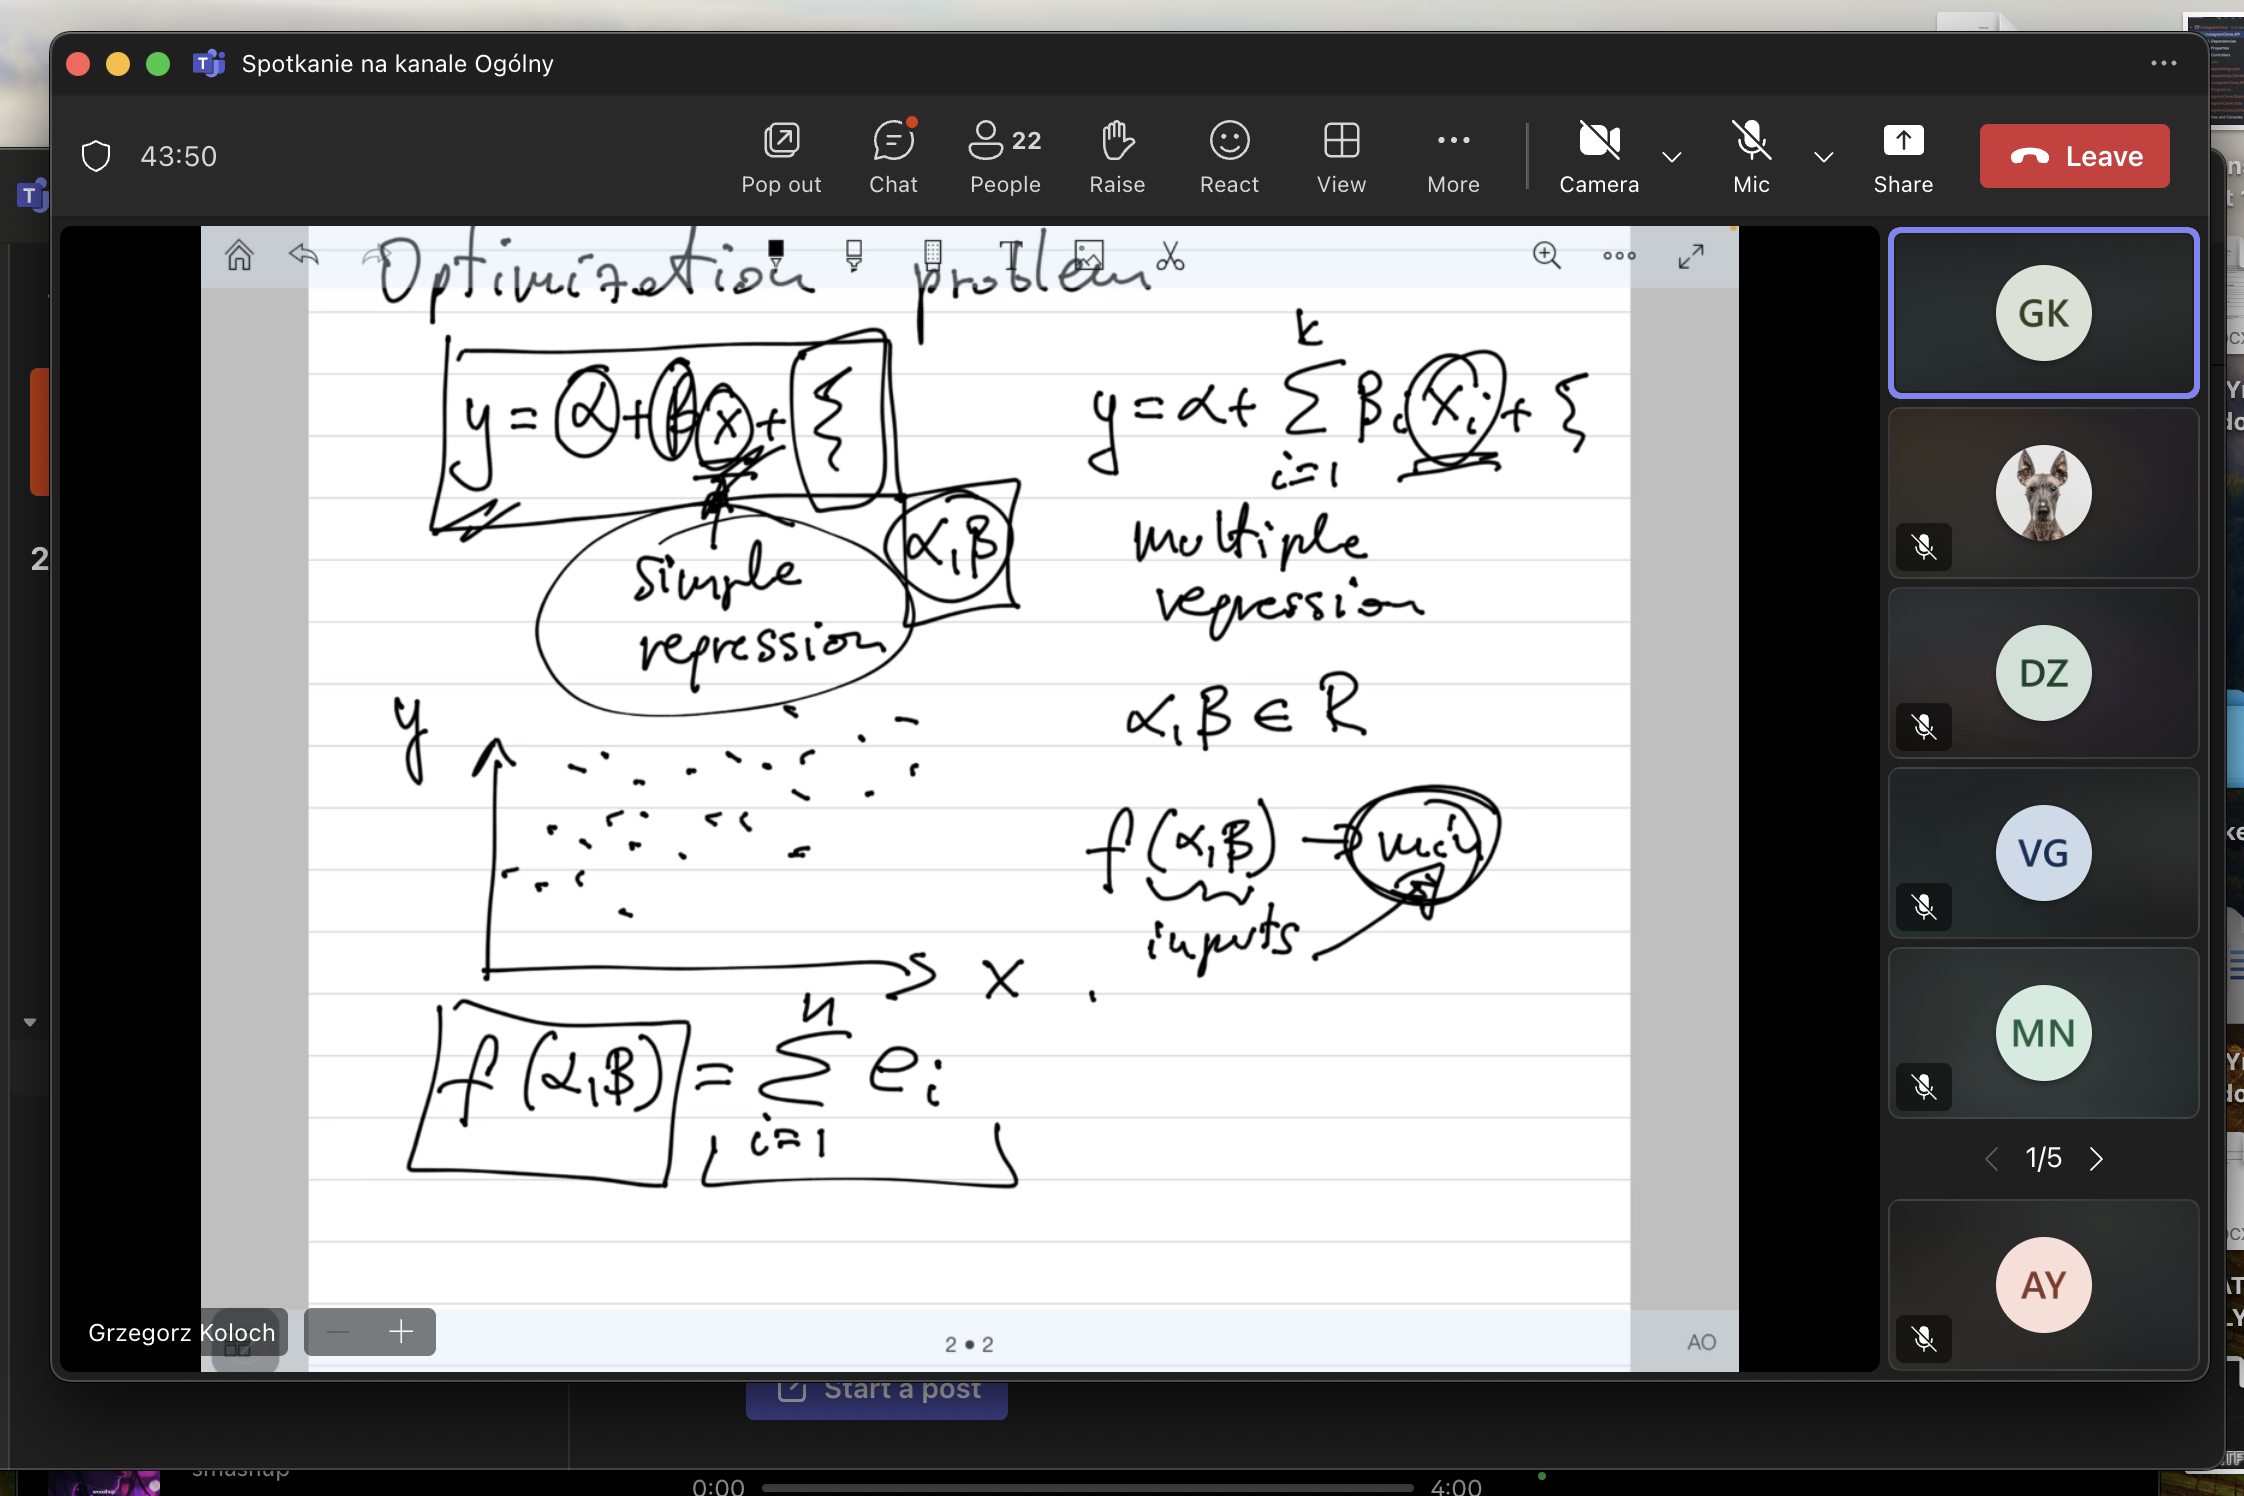 Spotkanie na kanale Ogólny
43:50
Pop out
Chat
22
People
Raise
React
View
More
Camera
Mic
Share
Leave
Optimization problem
y = α + β x + ξ
simple
regression
α, β
k
y = α + Σ βi xi + ξ
i=1
multiple
regression
α, β ∈ R
y
x
f (α, β) → min
inputs
n
f (α, β) = Σ ei
i=1
Grzegorz Koloch
2 • 2
AO
GK
DZ
VG
MN
1/5
AY
2
Start a post
smashup
0:00
4:00